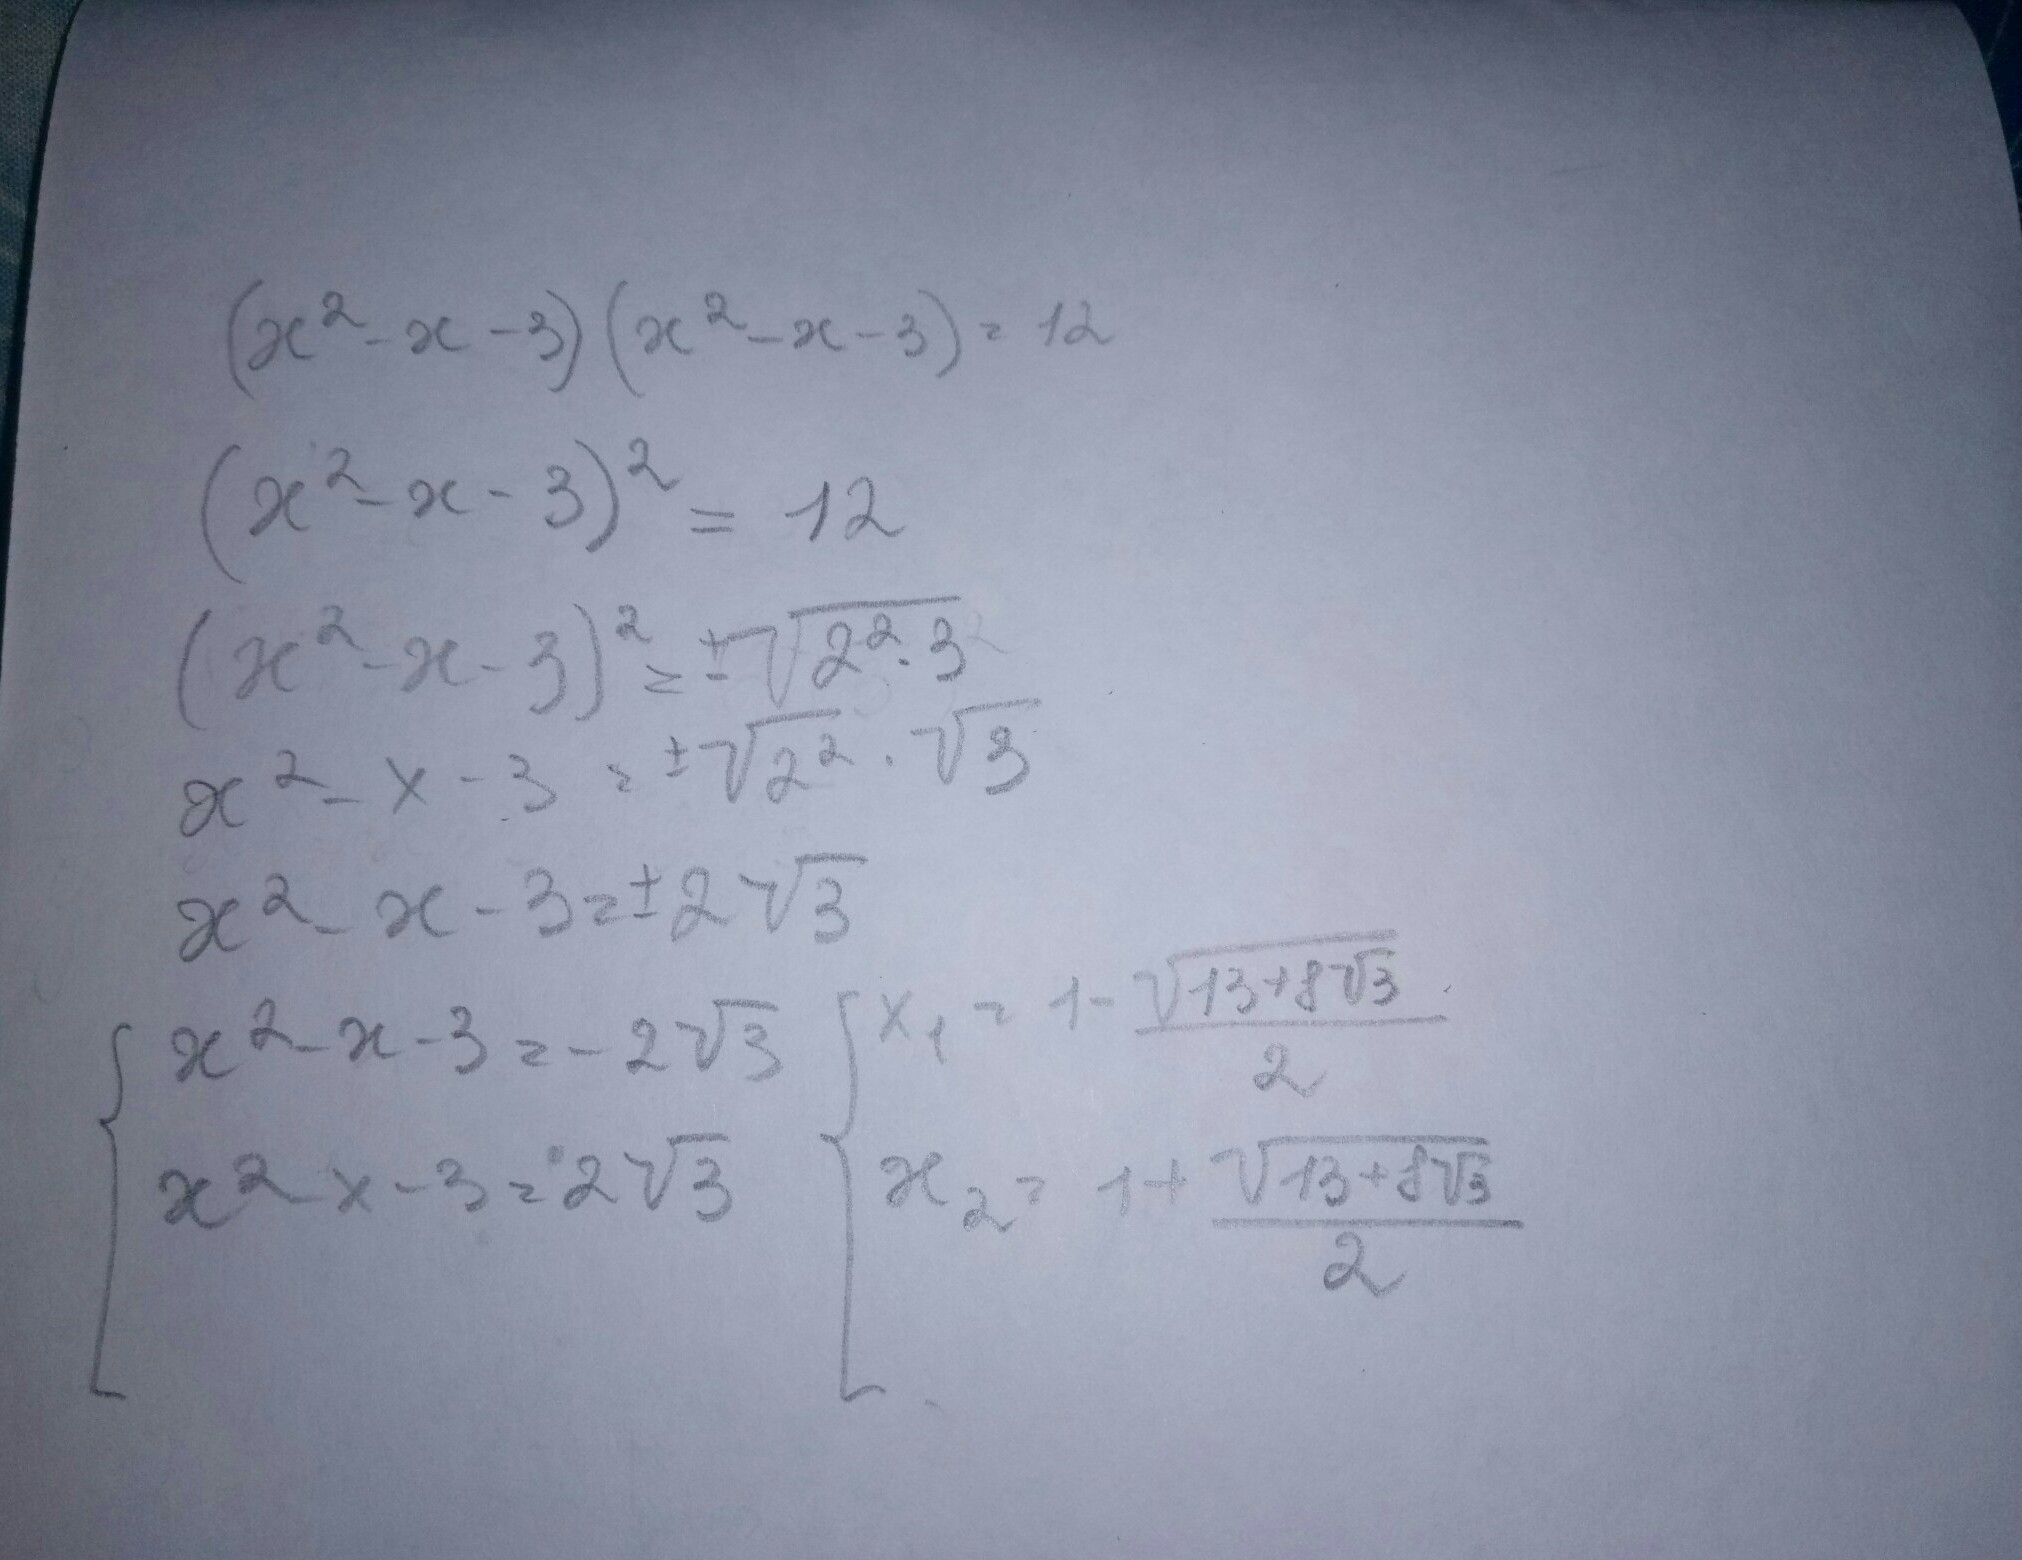 (x²-x-3)(x²-x-3)=12
(x²-x-3)²=12
(x²-x-3)²=±√(2²·3)
x²-x-3=±√2²·√3
x²-x-3=±2√3
{x²-x-3=-2√3
x²-x-3=2√3
{x₁=1-√(13+8√3)/2
x₂=1+√(13+8√3)/2